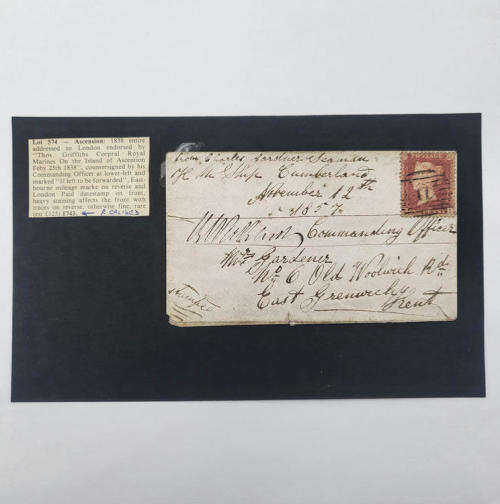 Lot 574 — Ascension: 1838 entire
addressed to London endorsed by
"Thos. Griffiths Corpral Royal
Marines On the Island of Ascension
Feby 25th 1838", countersigned by his
Commanding Officer at lower-left and
marked "If left to be forwarded", East-
bourne mileage marke on reverse and
London Paid datestamp on front;
heavy staining affects the front with
traces on reverse, otherwise fine, rare
£743.
from Charles Gardener Seaman
H M Ship Cumberland
November 12th
1857
Commanding Officer
Mrs Gardener
No 6 Old Woolwich Rd
East Greenwich
Kent
POSTAGE